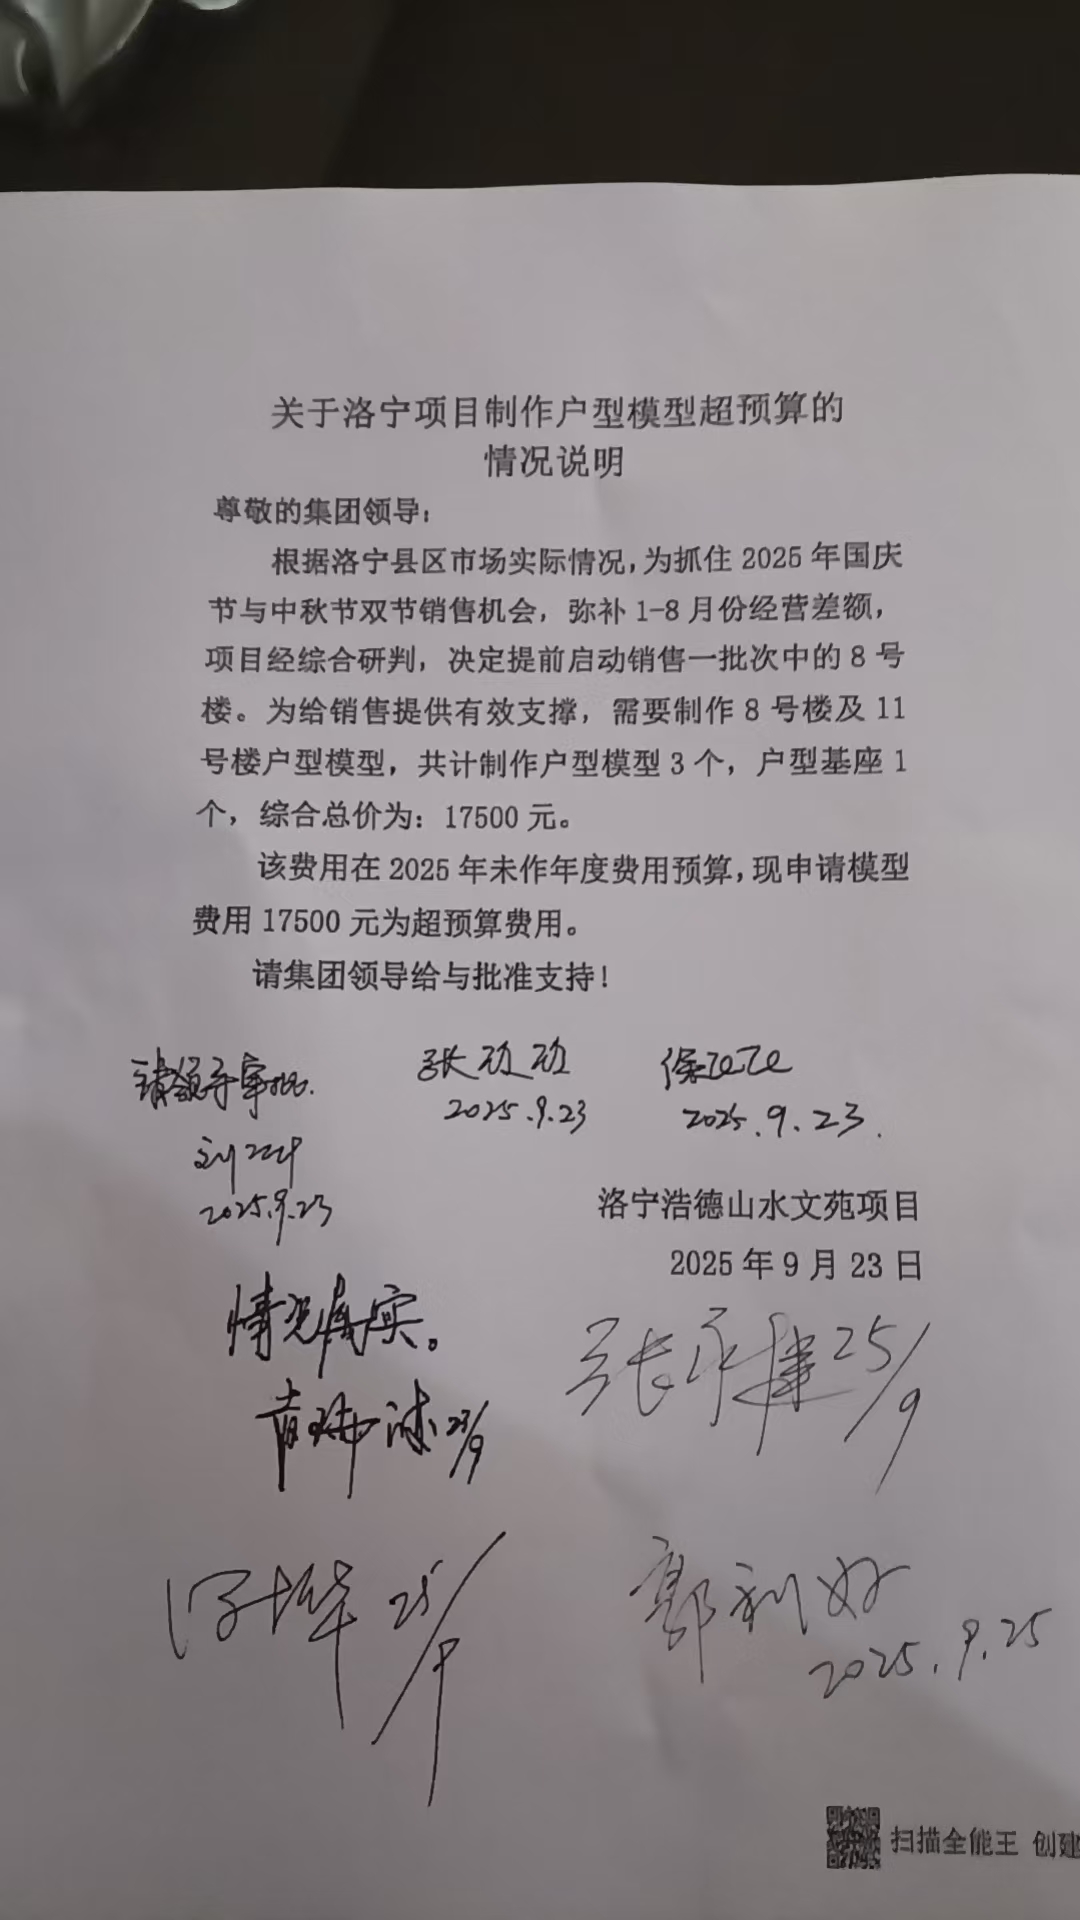 关于洛宁项目制作户型模型超预算的
情况说明
尊敬的集团领导：
根据洛宁县区市场实际情况，为抓住 2025 年国庆
节与中秋节双节销售机会，弥补 1-8 月份经营差额，
项目经综合研判，决定提前启动销售一批次中的 8 号
楼。为给销售提供有效支撑，需要制作 8 号楼及 11
号楼户型模型，共计制作户型模型 3 个，户型基座 1
个，综合总价为：17500 元。
该费用在 2025 年未作年度费用预算，现申请模型
费用 17500 元为超预算费用。
请集团领导给与批准支持！
请领导审批.
张
2025.9.23
2025.9.23.
刘
2025.9.23
洛宁浩德山水文苑项目
2025 年 9 月 23 日
情况属实。
张永 25/9
23/9
25/9
郭利好
2025.9.25
扫描全能王 创建